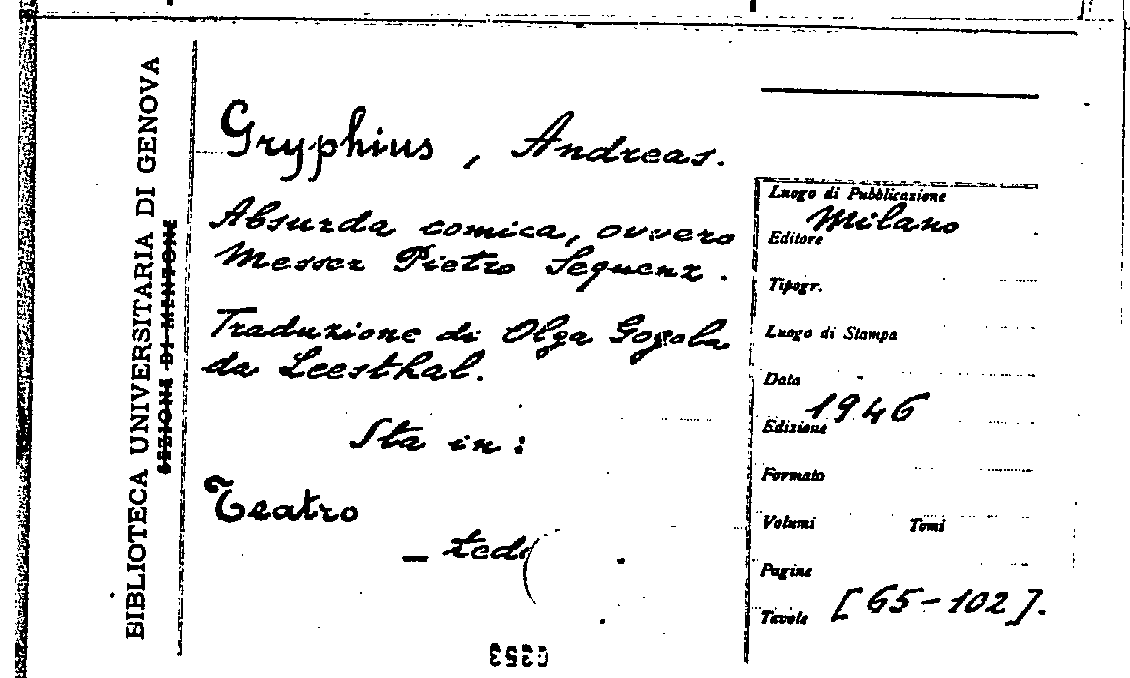 BIBLIOTECA UNIVERSITARIA DI GENOVA
SEZIONE DI MINTONE
Gryphius, Andreas.
Absurda comica, ovvero
Messer Pietro Sequenz.
Traduzione di Olga Gogola
da Leesthal.
Sta in:
Teatro
- tede
Luogo di Pubblicazione
Milano
Editore
Tipogr.
Luogo di Stampa
Data
1946
Edizione
Formato
Volumi Tomi
Pagine
[65-102].
Tavole